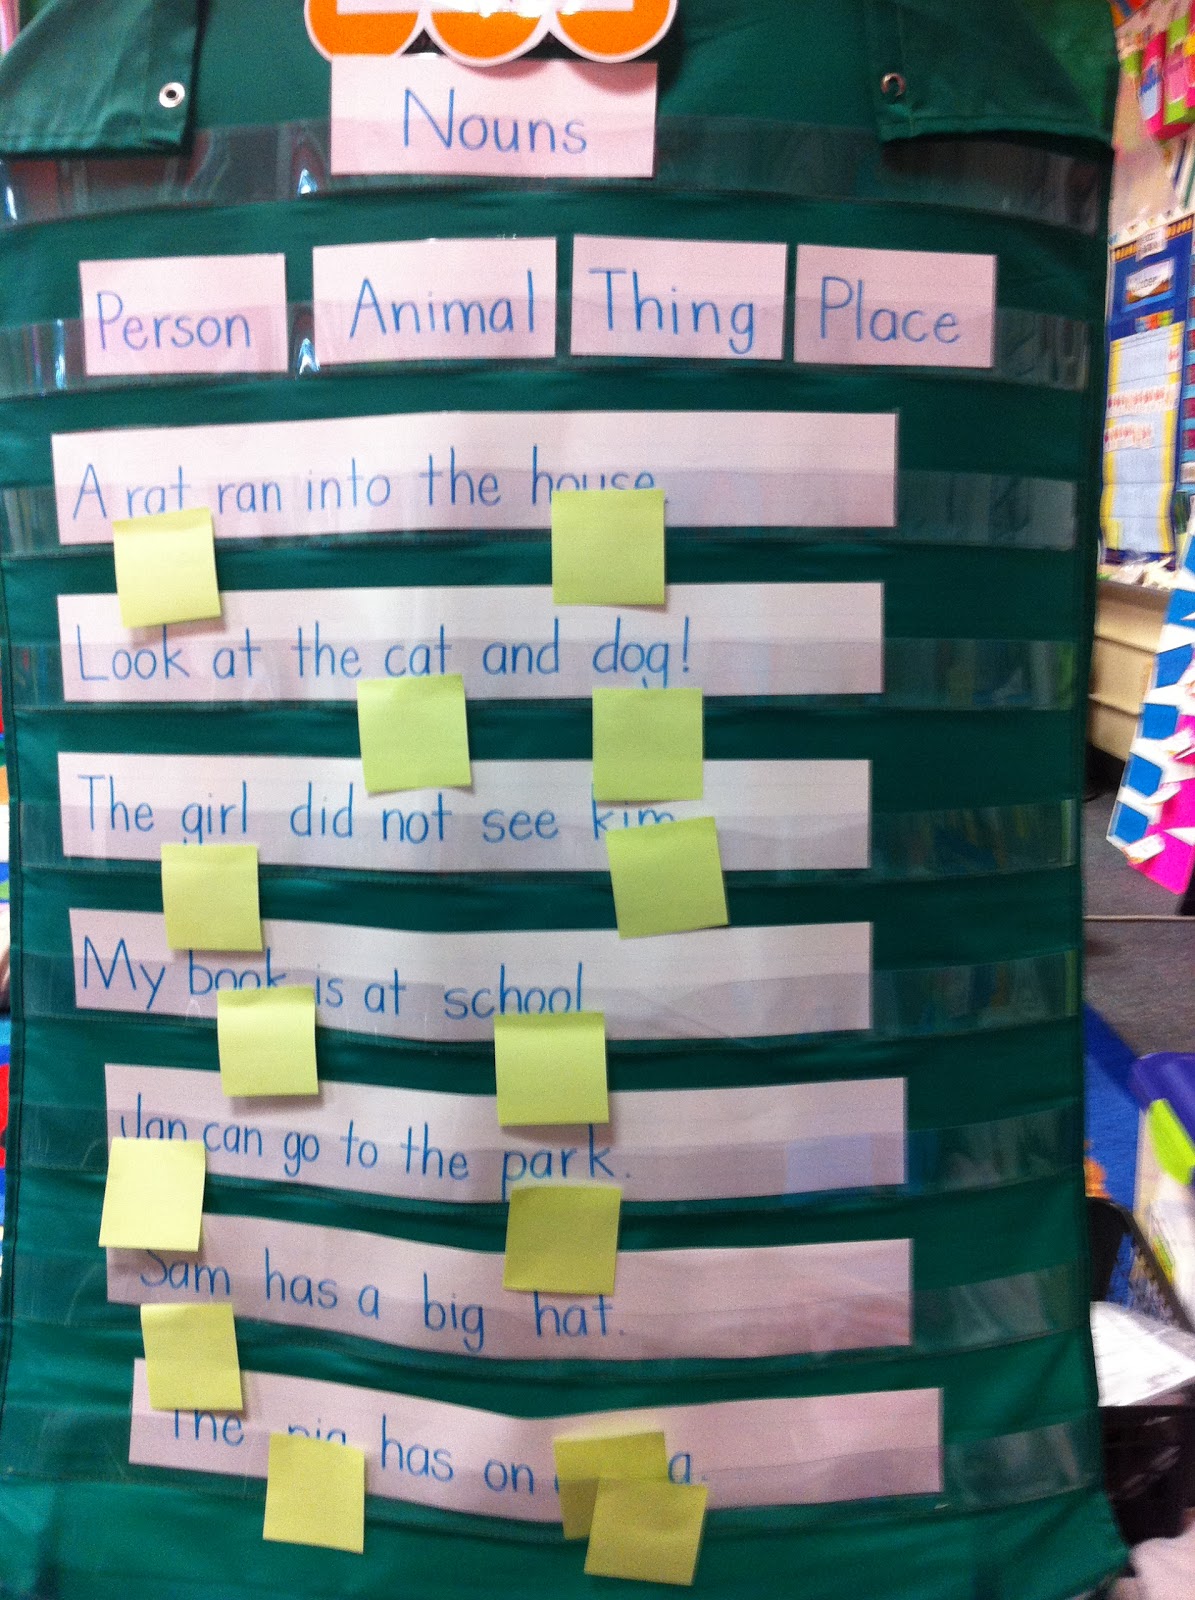 Nouns
Person Animal Thing Place
A rat ran into the house.
Look at the cat and dog!
The girl did not see kim
My book is at school
Jan can go to the park.
Sam has a big hat.
The pig has on a.